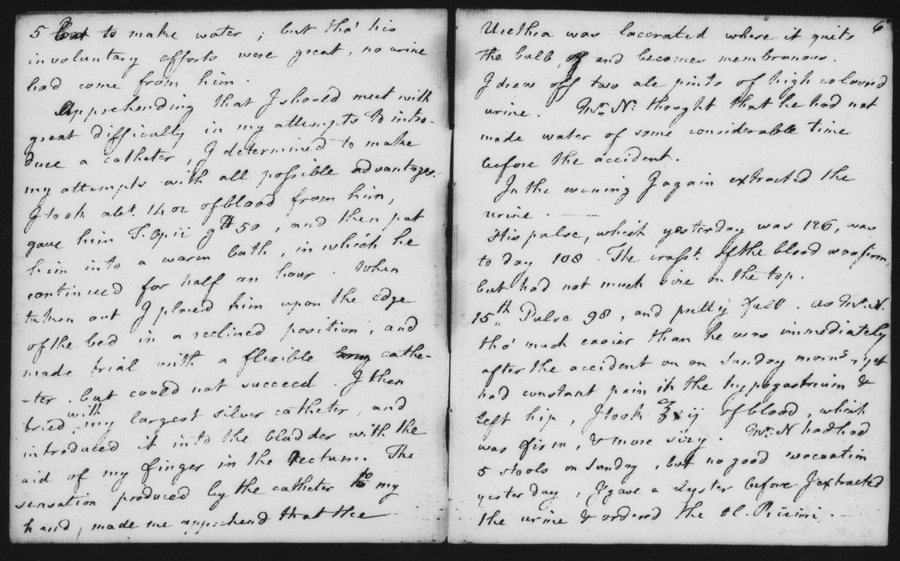 5 to make water ; but tho' his
involuntary efforts were great, no urine
had come from him.
Apprehending that I should meet with
great difficulty in my attempts to intro-
duce a catheter, I determined to make
my attempts with all possible advantages.
I took abt. 14 oz of blood from him,
gave him T. Opii gtt 50, and then put
him into a warm bath, in which he
continued for half an hour. When
taken out I placed him upon the edge
of the bed in a reclined position, and
made trial with a flexible cathe-
-ter. but could not succeed. I then
tried with my largest silver catheter, and
introduced it into the bladder with the
aid of my finger in the Rectum. The
sensation produced by the catheter to my
hand, made me apprehend that the
6
Urethra was lacerated where it quits
the bulb, and becomes membranous.
I drew off two ale pints of high coloured
urine. Mr. N: thought that he had not
made water of some considerable time
before the accident.
In the evening I again extracted the
urine.
His pulse, which yesterday was 126, was
to day 108. The crasst. of the blood was firm,
but had not much size on the top.
15th,, Pulse 98, and pretty full. as Mr. N.
tho' much easier than he was immediately
after the accident on Sunday morng, yet
had constant pain in the hypogastrium &
left hip, I took ℥xij of blood, which
was firm, & more sizy. Mr. N had had
5 stools on Sunday, but no good evacuation
yesterday, I gave a clyster before I extracted
the urine & ordered the Ol. Ricini.